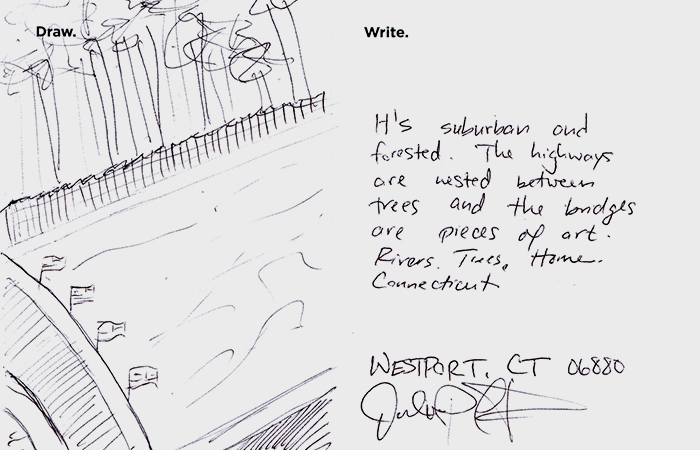 Draw.
Write.
It's suburban and
forested. The highways
are nested between
trees and the bridges
are pieces of art.
Rivers. Trees. Home.
Connecticut
WESTPORT, CT 06880